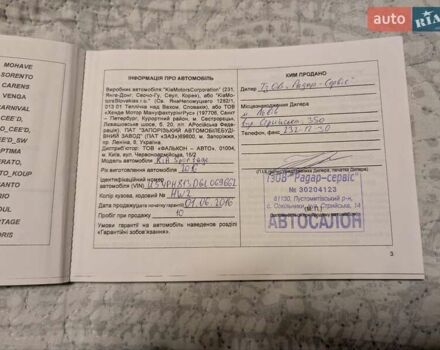 auto
RIA
MOHAVE
SORENTO
CARENS
VENGA
CARNIVAL
CEE'D
O_CEE'D
_CEE'D
_SW
OPTIMA
ERATO
ATO_KOUP
CANTO
SOUL
RIO
ORIS
ІНФОРМАЦІЯ ПРО АВТОМОБІЛЬ
Виробник автомобіля "KiaMotorsCorporation" (231,
Янге-Донг, Сеочо-Гу, Сеул, Корея), або "KiaMo-
torsSlovakias r.o." (Св. ЯнаНепомуцкего 1282/1,
013 01 Тепличка над Вахом, Словакія), або ТОВ
«Хенде Мотор МануфактурингРус» (197706, Санкт
– Петербург, Курортний район, м. Сестрорецьк,
Левашовське шосе, б. 20, літ. АРосійська Федера-
ція), або ПАТ "ЗАПОРІЗЬКИЙ АВТОМОБІЛЕБУДІ-
ВНИЙ ЗАВОД" (ПАТ «ЗАЗ»)69600, м. Запоріжжя,
пр. Леніна, 8, Україна
Дистриб'ютор: ТОВ «ФАЛЬКОН – АВТО», 01004,
м. Київ, вул. Червоноармійська, 15/2
Модель автомобіля KIA Sportage
Рік виготовлення автомобіля 2016
Ідентифікаційний номер
автомобіля (VIN)
Колір кузова, кодовий №
Дата продажу(дата початку гарантії) 01.06.2016
Пробіг при продажу 10
Умови гарантії на автомобіль наведено розділі
«Гарантійні зобов'язання».
КИМ ПРОДАНО
Дилер ТзОВ "Радар-Сервіс"
Місцезнаходження Дилера
м. Львів
вул. Стрийська 350
Телефон, факс
ТЗОВ "Радар-сервіс"
№ 30204123
81130, Пустомитівський р-н,
с. Сокільники, вул. Стрийська, 14
АВТОСАЛОН
3